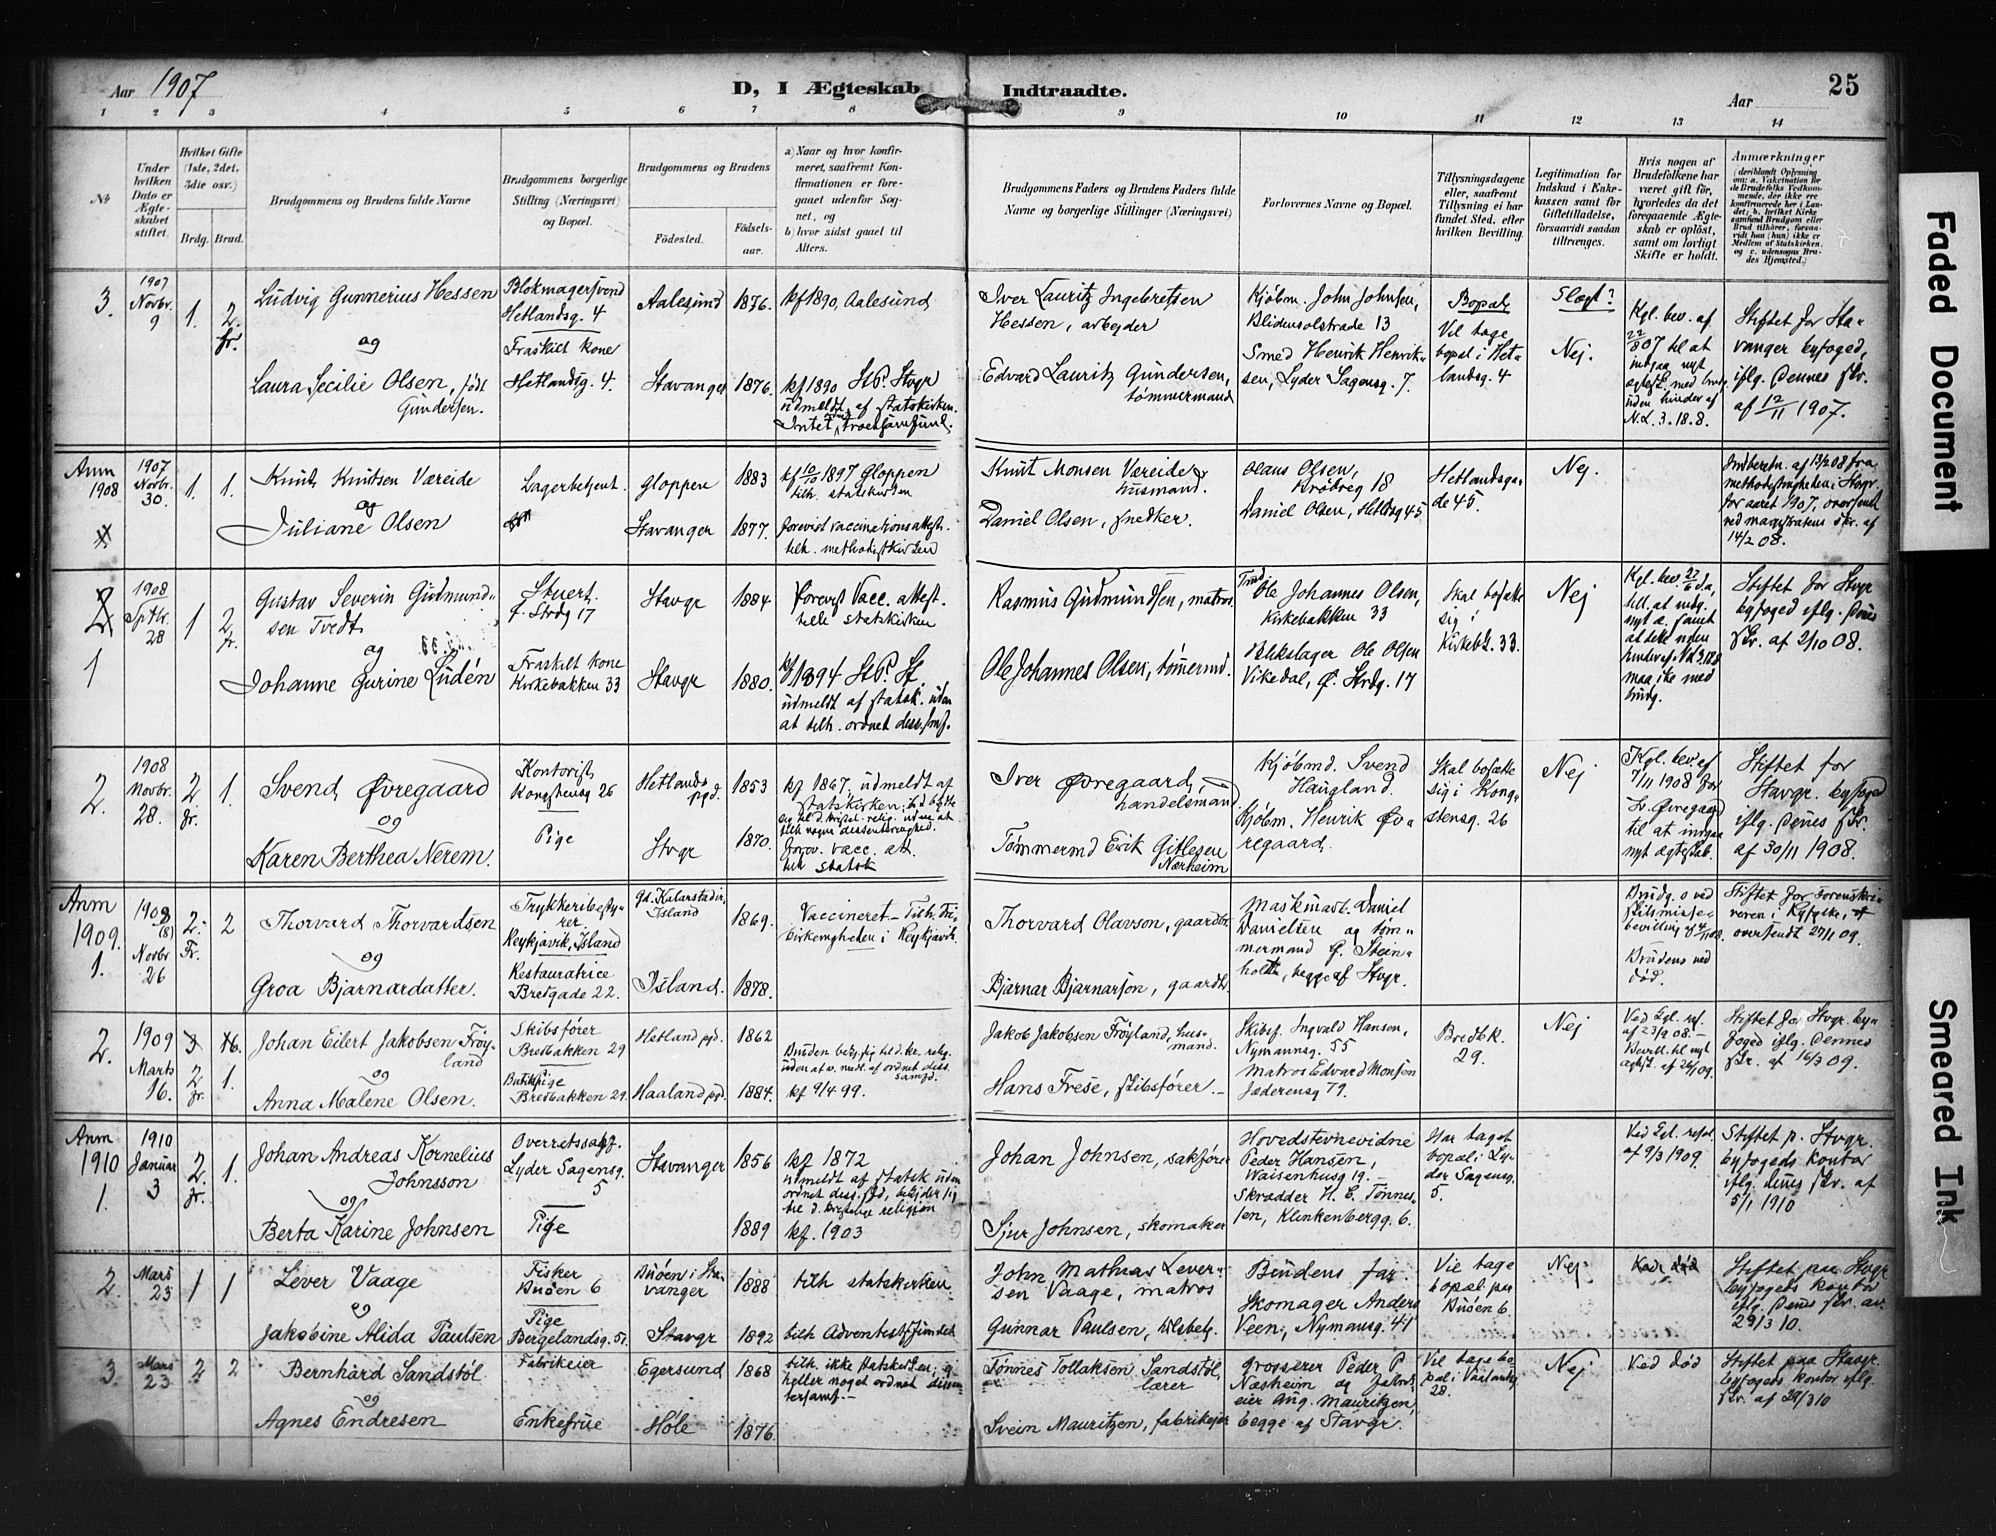 Aar 1907
D, I Ægteskab Indtraadte.
Aar
25
1 2 3 4 5 6 7 8 9 10 11 12 13 14
№
Under hvilken Dato er Ægteskabet stiftet.
Hvilket Gifte (1ste, 2det, 3die osv.)
Brdg. Brud.
Brudgommens og Brudens fulde Navne
Brudgommens borgerlige Stilling (Næringsvei) og Bopæl.
Brudgommens og Brudens
Födested.
Födsels-aar.
a) Naar og hvor konfirmeret, saafremt Konfirmationen er foregaaet udenfor Sognet, og
b) hvor sidst gaaet til Alters.
Brudgommens Faders og Brudens Faders fulde Navne og borgerlige Stillinger (Næringsvei)
Forlovernes Navne og Bopæl.
Tillysningsdagene eller, saafremt Tillysning ei har fundet Sted, efter hvilken Bevilling.
Legitimation for Indskud i Enkekassen samt for Giftetilladelse, forsaavidt saadan tiltrænges.
Hvis nogen af Brudefolkene har været gift för, hvorledes da det foregaaende Ægteskab er oplöst, samt om lovligt Skifte er holdt.
Anmærkninger (deriblandt Oplysning om: a. Vakcination for de Brudefolks Vedkommende, der ikke ere konfirmerede her i Landet; b. hvilket Kirkesamfund Brudgom eller Brud tilhörer, forsaavidt han (hun) ikke er Medlem af Statskirken, og c. udensogns Brudes Hjemsted.)
3. 1907 Novbr. 9 1. 2. fr.
Ludvig Gunnerius Hessen
og
Laura Secilie Olsen, født Gundersen.
Blokmagersvend Hetlandsg. 4
Fraskilt kone Hetlandsg. 4.
Aalesund 1876. kf 1890, Aalesund
Stavanger 1876. kf 1890 St P. Stvgr udmeldt af statskirken. Intet troessamfund.
Iver Lauritz Ingebretsen Hessen, arbeider
Edvard Lauritz Gundersen, tømmermand
Kjøbm. John Johnsen, Blidensolstrade 13
Smed Henrik Henriksen, Lyder Sagensg. 7.
Bopæl
Vil tage bopæl i Hetlandsg. 4
Slægt?
Nej.
Kgl. bev. af 22/8 07 til at indgaa nyt ægtesk. med brudg. uden hinder af N.L. 3.18.8.
Stiftet for Stavanger byfoged, iflg. dennes skr. af 12/11 1907.
Anm 1908
1907 Novbr. 30. 1. 1.
Knut Knutsen Væreide
og
Juliane Olsen
Lagerbetjent.
Gloppen 1883 kf 10/10 1897 Gloppen tilh. statskirken
Stavanger 1877. forevist vaccinationsattest. tilh. methodistkirken
Knut Monsen Væreide husmand.
Daniel Olsen, snedker.
Olaus Olsen, 18
Daniel Olsen, Hetldsg 45
Hetlandsgade 45.
Nej.
Indberetn. af 13/2 08 fra methodistmenigheden i Stvgr. for aaret 1907, oversendt ved magistratens skr. af 14/2 08.
2 1
1908 Septbr. 28 1 2 fr.
Gustav Severin Gudmundsen Tvedt
og
Johanne Gurine Lüdén
Stuert. Strdg 17
Fraskilt kone Kirkebakken 33
Stavgr 1884 Forevist Vacc. attest. tilh. statskirken
Stavgr 1880. kf 1894 St P. St. udmeldt af statsk. uden at tilh. ordnet diss. smf.
Rasmus Gudmundsen, matros.
Ole Johannes Olsen, tømermd.
Tmd. Ole Johannes Olsen, Kirkebakken 33
Blikslager Ole Olsen Vikedal, Ø. Strdg. 17
Skal bosætte sig i Kirkebk. 33.
Nej
Stiftet for Stvgr byfoged iflg. denes skr. af 2/10 08.
2. 1908 Novbr. 28. 2. fr. 1.
Svend Øvregaard
og
Karen Berthea Nerem.
Kontorist Kongstensg 26
Pige
Hetlands pgd. 1853
Stvgr 1870.
kf 1867. udmeldt af statskirken.
Forev. vacc. att. tilh statsk
Iver Øvregaard, handelsmand
Tømmermd Erik Gitlesen Nærheim
Kjøbmd. Svend Haugland.
Kjøbm. Henrik Øvregaard.
Skal bosætte sig i Kongstensg. 26
Nej
Kgl. bev. af 7/11 1908 for Sv. Øvregaard til at inngaa nyt ægteskab.
Stiftet for Stavgr. byfoged iflg. denes skr. af 30/11 1908.
Anm 1909. 1.
1908 (8) Novbr 26 2. Fr. 2
Thorvard Thorvardsen
og
Groa Bjarnardatter.
Trykkeribestyrer. Reykjavik, Island
Restauratrice Bredgade 22.
Gd. Kalarstadir, Island 1869.
Island. 1878.
Vaccineret. – Tilh. Frikirkemenigheden i Reykjavik.
Thorvard Olavson, gaardbr.
Bjarnar Bjarnarson, gaardbr.
Maskinarb. Daniel Danielsen og tømmermand Steinholt, begge af Stvgr.
Brudg. s ved skilsmissebevilling af 4/11 08.
Brudens ved død.
Stiftet for Sorenskriveren i Ryfylke, oversendt 27/1 09.
2. 1909 Marts 16. 2 fr. 1.
Johan Eilert Jakobsen Frøyland
og
Anna Malene Olsen.
Skibsfører Bredbakken 29
Pige Bredbakken 29.
Hetland pgd. 1862
Haaland pgd. 1884. kf 9/4 99.
Jakob Jakobsen Frøyland, husmand.
Hans Frese, skibsfører. –
Skibsf. Ingvald Hansen, Nymannsg. 55
Matros Edvard Monsen Jæderensg 79.
Bredbk. 29.
Nej
Ved kgl. res. af 23/9 08. – Bevill. til nyt ægtesk. af 26/1 09.
Stiftet for Stvgr. byfoged iflg. dennes skr. af 16/3 09.
Anm 1910 1.
1910 Januar 3 2. fr. 1.
Johan Andreas Kornelius Johnsson
og
Berta Karine Johnsen
Overretssagf. Lyder Sagensg. 5
Pige
Stavanger 1856
1889
kf 1872 udmeldt af statsk uden ordnet diss. sfd, bekjender sig til d. kristelige religion
kf. 1903
Johan Johnsen, sakfører
Sjur Johnsen, skomaker
Hovedstevnevidne Peder Hansen, Waisenhusg 19.
Skrædder H. E. Tønnessen, Klinkenbergg. 6.
Har taget bopæl i Lyder Sagensg. 5.
Ved kgl. resol. af 9/3 1909.
Stiftet p. Stvgr. byfogeds kontor iflg. denes skr. af 5/1 1910
2. Mars 23 1 1
Lever Vaage
og
Jakobine Alida Paulsen
Fisker Buøen 6
Pige Bergelandsg. 51.
Buøen i Stavanger 1888 tilh statskirken
Stavgr 1892 tilh Adventistsamfundet
John Mathias Leversen Vaage, matros
Gunnar Paulsen,
Brudens far.
Skomager Anders Veen, Nymansg. 41
Vil tage bopæl paa Buöen 6.
Nej
Stiftet paa Stvgr byfogeds kontor iflg. denes skr. av. 29/3 10.
3. Mars 23 2 2
Bernhard Sandstöl
og
Agnes Endresen
Fabrikeier
Enkefrue
Egersund 1868
Høle 1876.
tilh. ikke statskirken, heller noget ordnet dissentersamf. –
Tønnes Tollaksen Sandstöl, lærer
Svein Mauritzen, fabrikejer
Grosserer Peder P. Næsheim og fabrikeier Aug. Mauritzen, begge af Stavgr.
Vil tage bopæl i 28.
Nej
Ved död
Stiftet paa Stavgr. byfogeds kontor iflg. skr. af 29/3 10
Faded Document
Smeared Ink